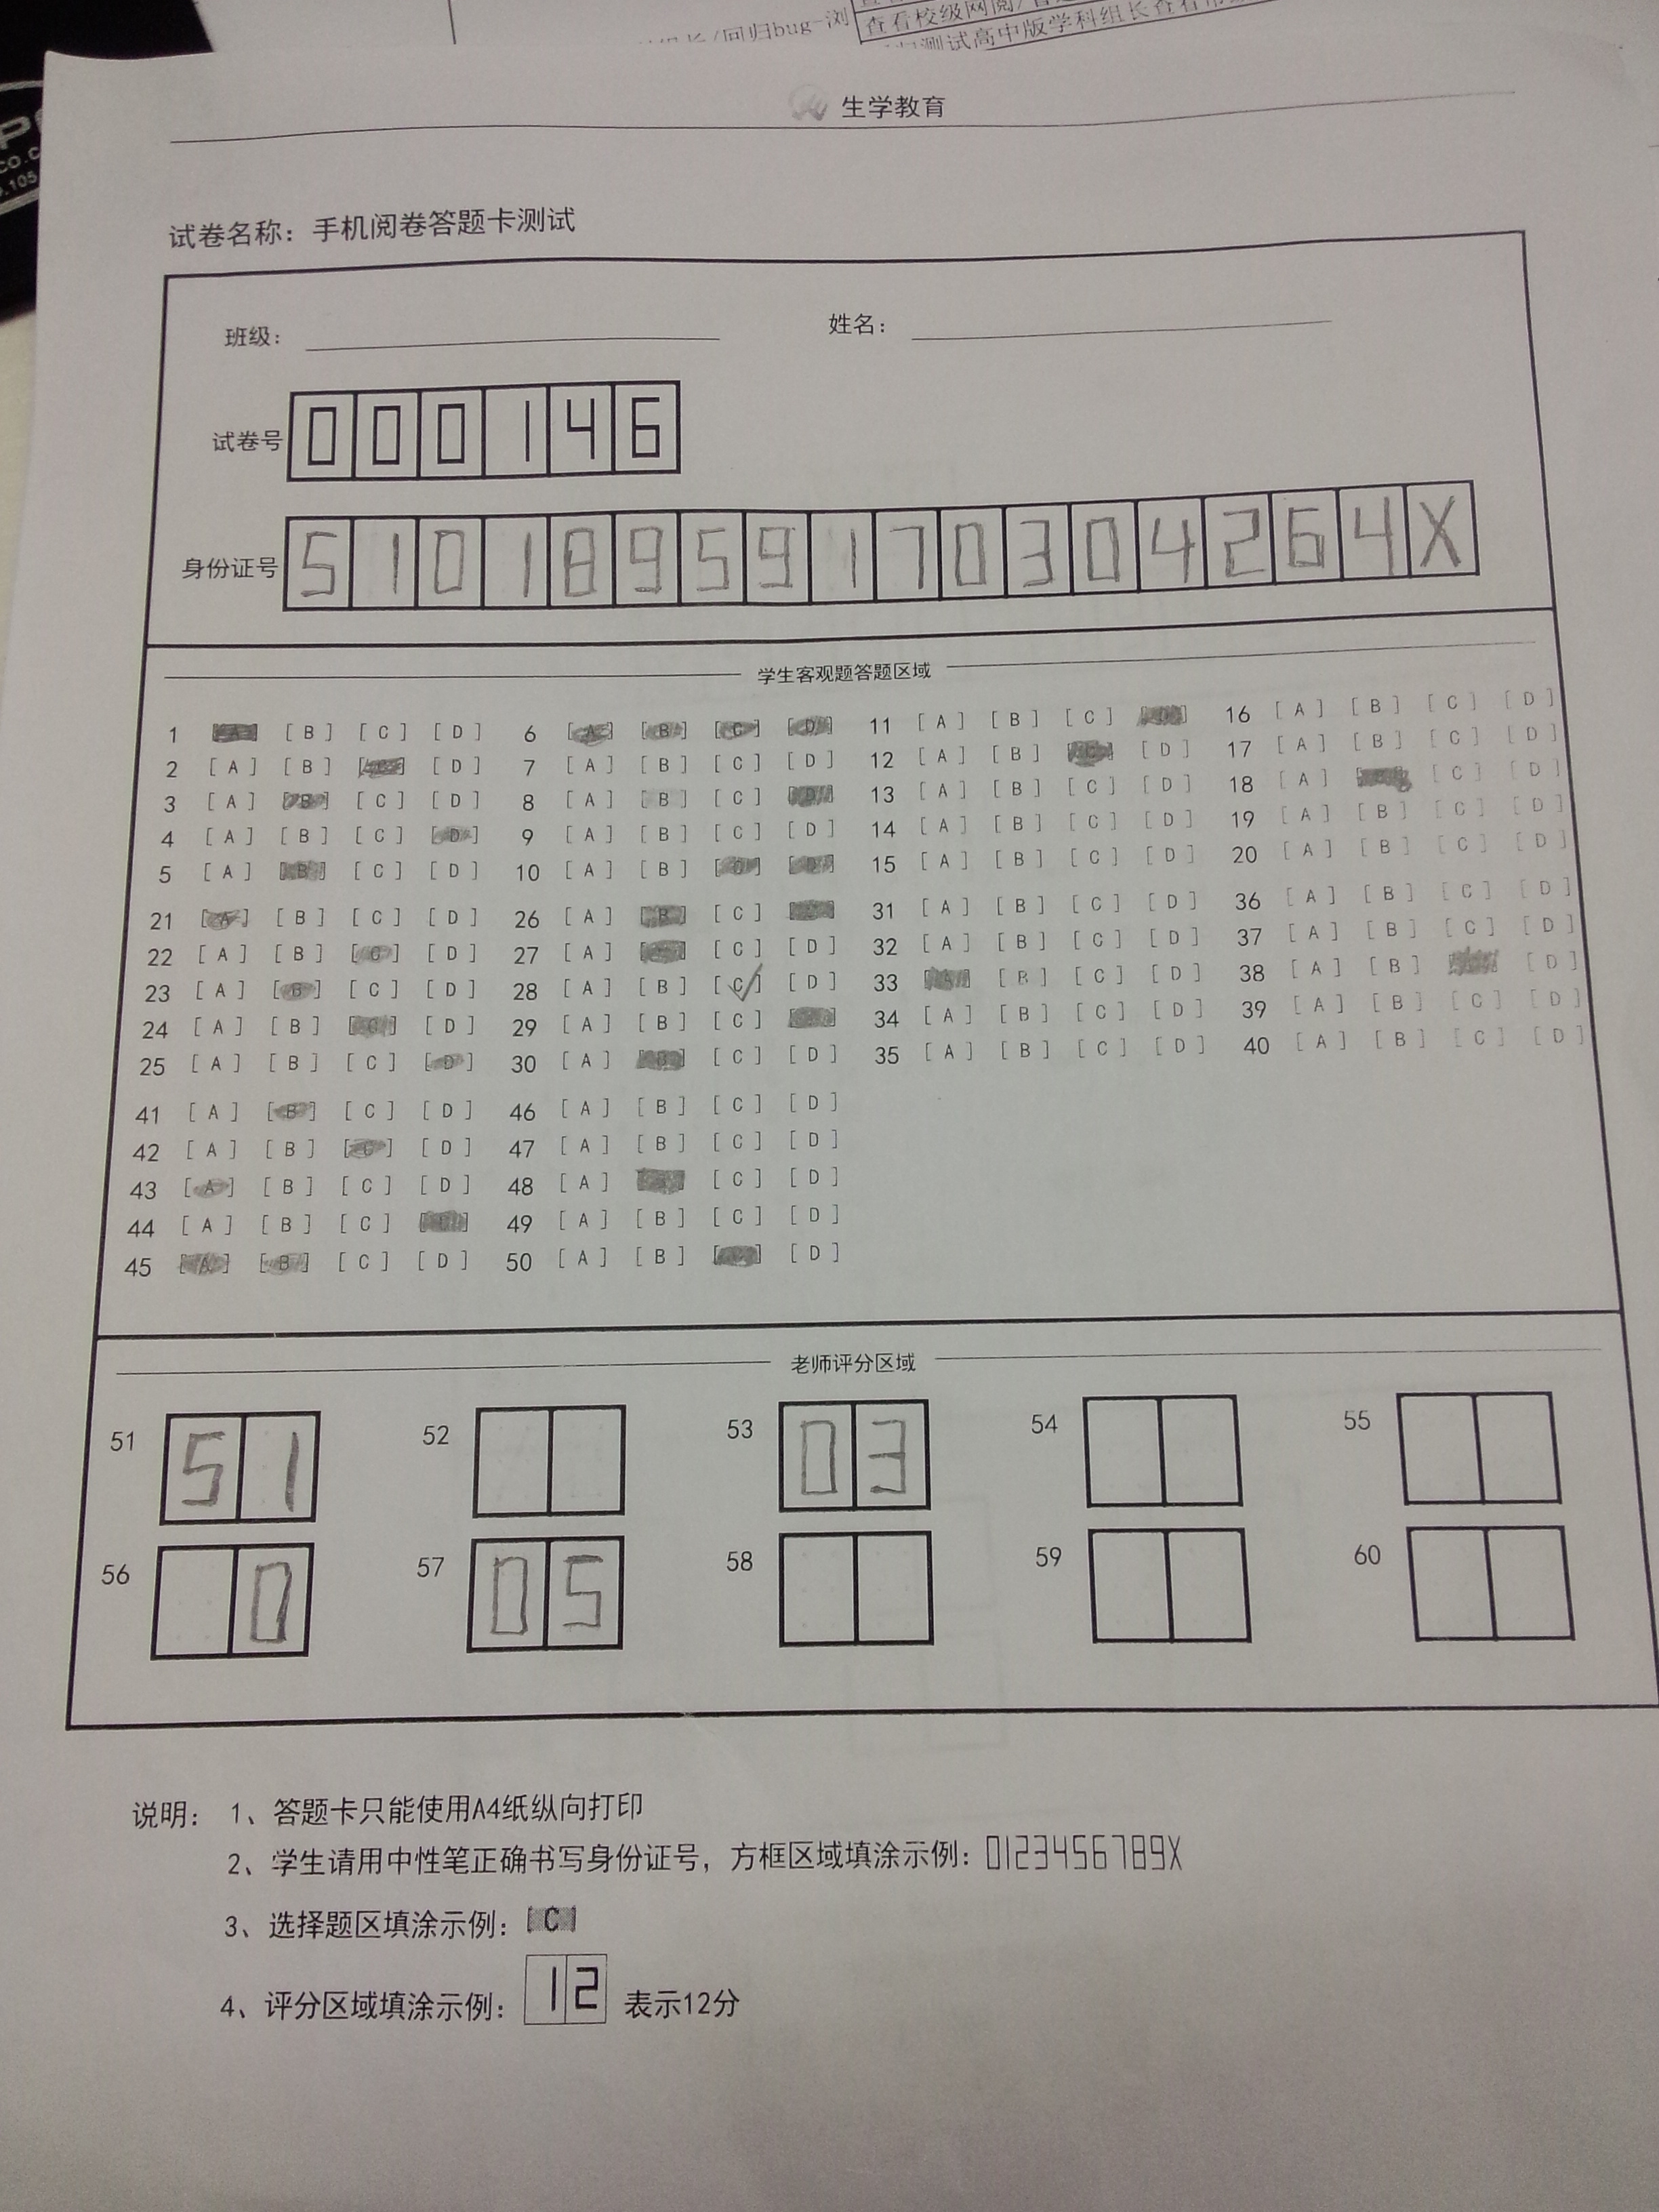 回归bug-浏
查看校级网阅/
测试高中版学科组长查看
CO.C
.105
生学教育
试卷名称：手机阅卷答题卡测试
班级： 姓名：
试卷号 000146
身份证号 51018959170304264X
学生客观题答题区域
1 [A] [B] [C] [D] 6 [A] [B] [C] [D] 11 [A] [B] [C] [D] 16 [A] [B] [C] [D]
2 [A] [B] [C] [D] 7 [A] [B] [C] [D] 12 [A] [B] [C] [D] 17 [A] [B] [C] [D]
3 [A] [B] [C] [D] 8 [A] [B] [C] [D] 13 [A] [B] [C] [D] 18 [A] [B] [C] [D]
4 [A] [B] [C] [D] 9 [A] [B] [C] [D] 14 [A] [B] [C] [D] 19 [A] [B] [C] [D]
5 [A] [B] [C] [D] 10 [A] [B] [C] [D] 15 [A] [B] [C] [D] 20 [A] [B] [C] [D]
21 [A] [B] [C] [D] 26 [A] [B] [C] [D] 31 [A] [B] [C] [D] 36 [A] [B] [C] [D]
22 [A] [B] [C] [D] 27 [A] [B] [C] [D] 32 [A] [B] [C] [D] 37 [A] [B] [C] [D]
23 [A] [B] [C] [D] 28 [A] [B] [C] [D] 33 [A] [B] [C] [D] 38 [A] [B] [C] [D]
24 [A] [B] [C] [D] 29 [A] [B] [C] [D] 34 [A] [B] [C] [D] 39 [A] [B] [C] [D]
25 [A] [B] [C] [D] 30 [A] [B] [C] [D] 35 [A] [B] [C] [D] 40 [A] [B] [C] [D]
41 [A] [B] [C] [D] 46 [A] [B] [C] [D]
42 [A] [B] [C] [D] 47 [A] [B] [C] [D]
43 [A] [B] [C] [D] 48 [A] [B] [C] [D]
44 [A] [B] [C] [D] 49 [A] [B] [C] [D]
45 [A] [B] [C] [D] 50 [A] [B] [C] [D]
老师评分区域
51 51 52 53 03 54 55
56 0 57 05 58 59 60
说明： 1、答题卡只能使用A4纸纵向打印
2、学生请用中性笔正确书写身份证号，方框区域填涂示例：0123456789X
3、选择题区填涂示例：[C]
4、评分区域填涂示例： 12 表示12分